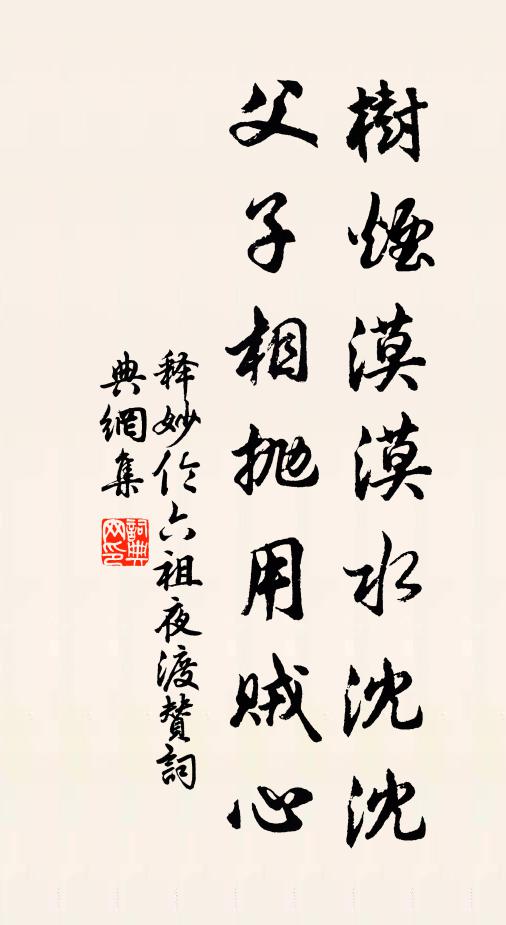 樹煙漠漠水沈沈
父子相拋用賊心
釋妙倫六祖夜渡贊詞
典網集
詞典
网印